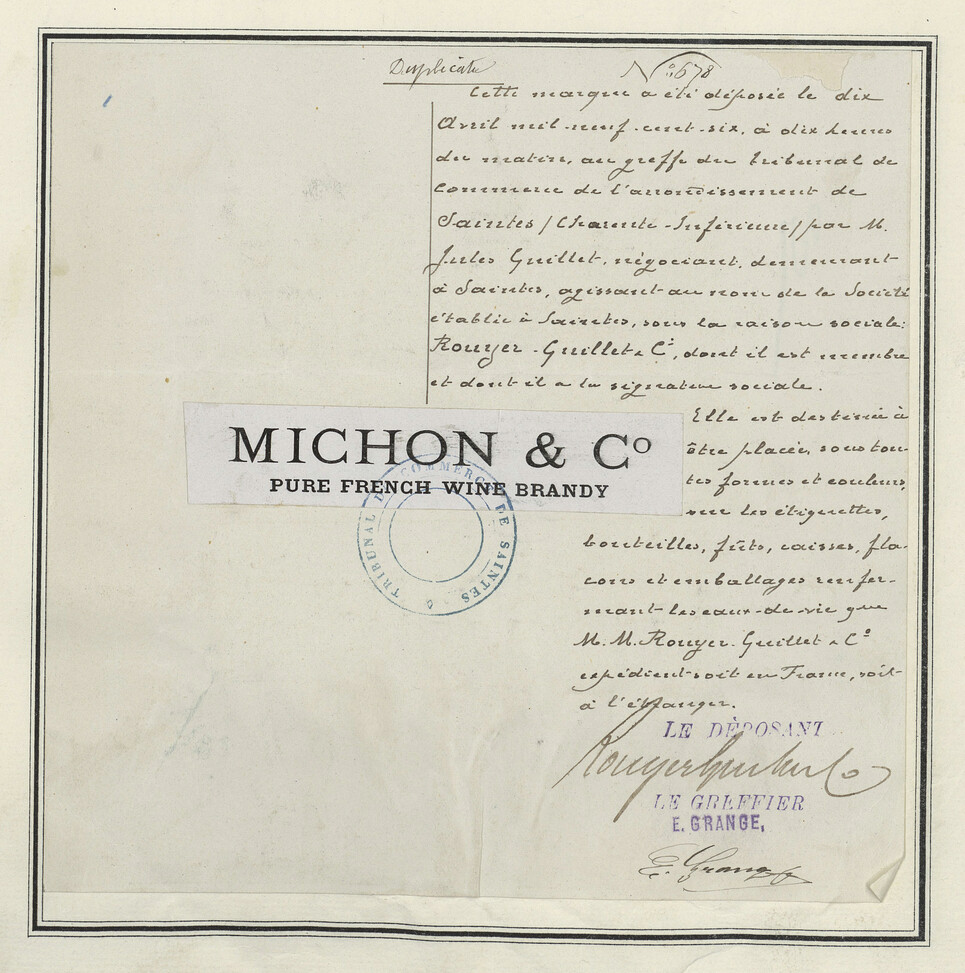 Duplicata
N° 678
Cette marque a été déposée le dix
Avril mil-neuf-cent-six, à dix heures
du matin, au greffe du tribunal de
Commerce de l'arrondissement de
Saintes / Charente-Inférieure / par M.
Jules Guillet, négociant, demeurant
à Saintes, agissant au nom de la Société
établie à Saintes, sous la raison sociale:
Rouyer-Guillet & C°, dont il est membre
et dont il a la signature sociale.
Elle est destinée à
être placée, sous tou-
tes formes et couleurs,
sur les étiquettes,
bouteilles, fûts, caisses, fla-
cons et emballages renfer-
mant les eaux-de-vie que
M. M. Rouyer-Guillet & C°
expédient soit en France, soit
à l'étranger.
MICHON & C°
PURE FRENCH WINE BRANDY
TRIBUNAL DE COMMERCE DE SAINTES
LE DÉPOSANT
Rouyer Guillet & Co
LE GREFFIER
E. GRANGE,
E. Grange